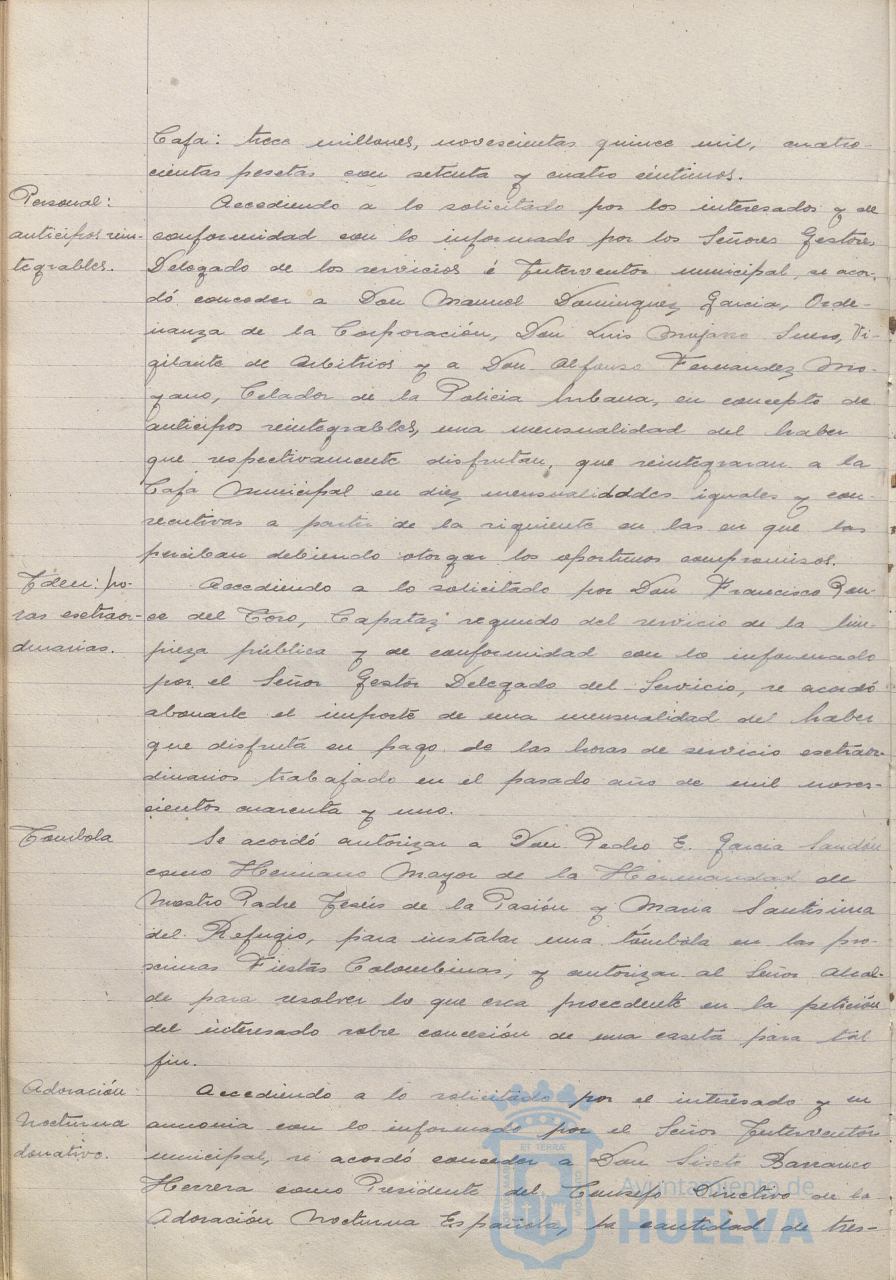 Caja: trece millones, novescientas quince mil, cuatro-
cientas pesetas con setenta y cuatro céntimos.
Personal:
anticipos rein-
tegrables.
Accediendo a lo solicitado por los interesados y de
conformidad con lo informado por los Señores Gestores
Delegado de los servicios é Interventor municipal, se acor-
dó conceder a Don Manuel Dominguez Garcia, Orde-
nanza de la Corporación, Don Luis Suero, Vi-
gilante de Arbitrios y a Don Alfonso Fernandez Mo-
yano, Celador de la Policia Urbana, en concepto de
anticipos reintegrables, una mensualidad del haber
que respectivamente disfrutan, que reintegraran a la
Caja Municipal en diez mensualidades iguales y con-
secutivas a partir de la siguiente en las en que las
perciban debiendo otorgar los oportunos compromisos.
Idem: ho-
ras esctraor-
dinarias.
Accediendo a lo solicitado por Don Francisco Pon-
ce del Toro, Capataz segundo del servicio de la lim-
pieza pública y de conformidad con lo informado
por el Señor Gestor Delegado del Servicio, se acordó
abonarle el importe de una mensualidad del haber
que disfruta en pago de las horas de servicio esctraor-
dinarios trabajado en el pasado año de mil noves-
cientos cuarenta y uno.
Tombola
Se acordó autorizar a Don Pedro E. Garcia Sandón
como Hermano Mayor de la Hermandad de
Nuestro Padre Jesús de la Pasión y Maria Santisima
del Refugio, para instalar una tómbola en las pro-
scimas Fiestas Colombinas, y autorizar al Señor Alcal-
de para resolver lo que crea procedente en la petición
del interesado sobre concesión de una caseta para tal
fin.
Adoración
Nocturna
donativo.
Accediendo a lo solicitado por el interesado y en
armonia con lo informado por el Señor Interventor
municipal, se acordó conceder a Don Siscto Barranco
Herrera como Presidente del Consejo Directivo de la
Adoración Nocturna Española, la cantidad de tres-
Ayuntamiento de
HUELVA